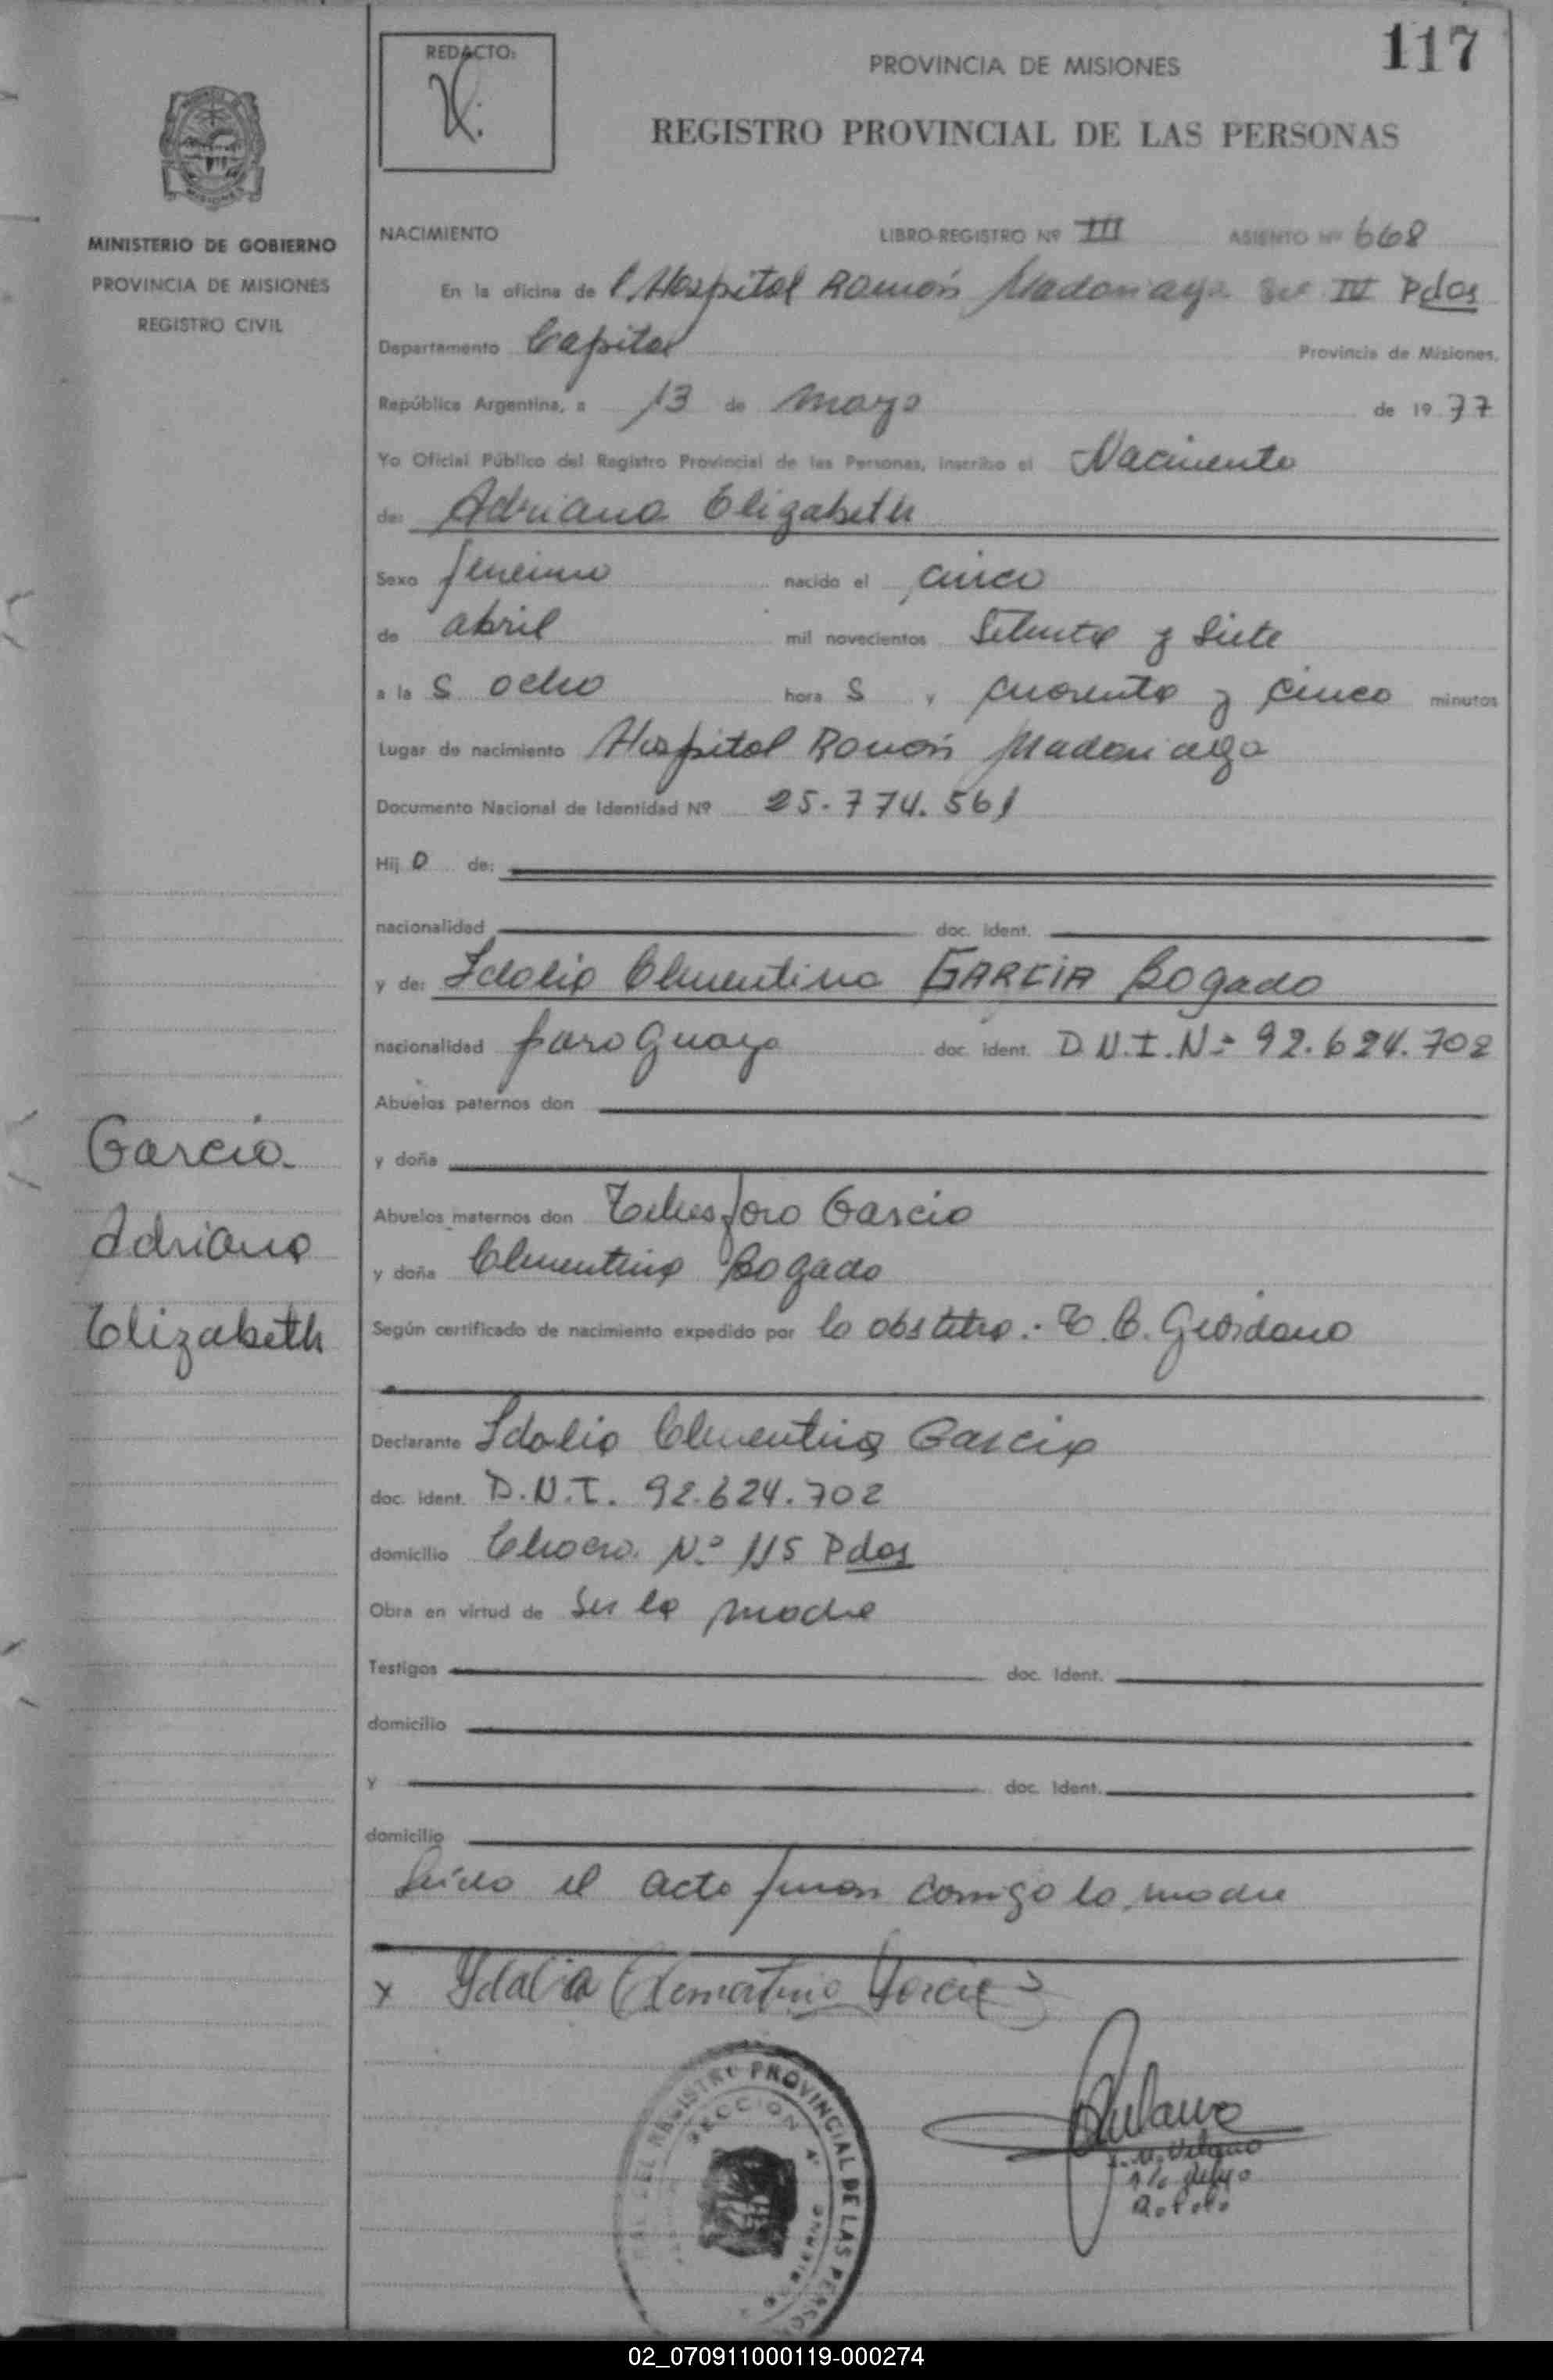 117
REDACTO:
PROVINCIA DE MISIONES
REGISTRO PROVINCIAL DE LAS PERSONAS
MISIONES
MINISTERIO DE GOBIERNO
PROVINCIA DE MISIONES
REGISTRO CIVIL
NACIMIENTO LIBRO-REGISTRO Nº III ASIENTO Nº 668
En la oficina de l Hospital Ramón Madariaga Sec IV Pdas
Departamento Capital Provincia de Misiones.
República Argentina, a 13 de mayo de 1977
Yo Oficial Público del Registro Provincial de las Personas, inscribo el Nacimiento
de: Adriana Elizabeth
Sexo femenino nacido el cinco
de abril mil novecientos Setenta y Siete
a la S ocho hora S y cuarenta y cinco minutos
Lugar de nacimiento Hospital Ramón Madariaga
Documento Nacional de Identidad Nº 25.774.561
Hij a de:
nacionalidad doc. ident.
y de: Idalia Clementina GARCIA Bogado
nacionalidad paraguaya doc. ident. D.N.I. Nº 92.624.702
Abuelos paternos don
y doña
Abuelos maternos don Telesforo Garcia
y doña Clementina Bogado
Según certificado de nacimiento expedido por la obstetra: E. B. Giordano
Garcia
Adriana
Elizabeth
Declarante Idalia Clementina Garcia
doc. ident. D.N.I. 92.624.702
domicilio Chacra Nº 115 Pdas
Obra en virtud de Ser la madre
Testigos doc. Ident.
domicilio
y doc. Ident.
domicilio
Leída el acta firma conmigo la madre
x Idalia Clementina Garcia
REGISTRO PROVINCIAL DE LAS PERSO
SECCION 4ª
02_070911000119-000274